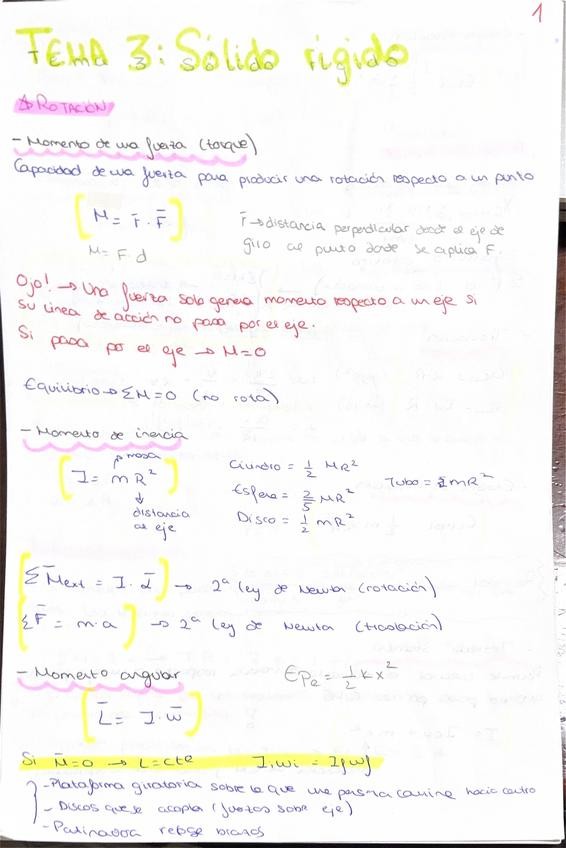 1
TEMA 3: Sólido rígido
ROTACIÓN
- Momento de una fuerza (torque)
Capacidad de una fuerza para producir una rotación respecto a un punto
M = r̄ · F̄
r̄ → distancia perpendicular desde el eje de
giro al punto donde se aplica F.
M = F · d
Ojo! → Una fuerza solo genera momento respecto a un eje si
su línea de acción no pasa por el eje.
Si pasa por el eje → M = 0
Equilibrio → ΣM = 0 (no rota)
- Momento de inercia
masa
I = m R²
distancia
al eje
Cilindro = 1/2 MR²
Esfera = 2/5 MR²
Disco = 1/2 mR²
Tubo = mR²
ΣM̄ext = I · ᾱ → 2ª ley de Newton (rotación)
ΣF̄ = m · a → 2ª ley de Newton (traslación)
- Momento angular
EPe = 1/2 k x²
L̄ = I · w̄
Si M̄ = 0 → L = cte I₁wi = If wf
- Plataforma giratoria sobre la que una persona camine hacia centro
- Discos que se acoplan (fuerzas sobre eje)
- Patinadora brazos